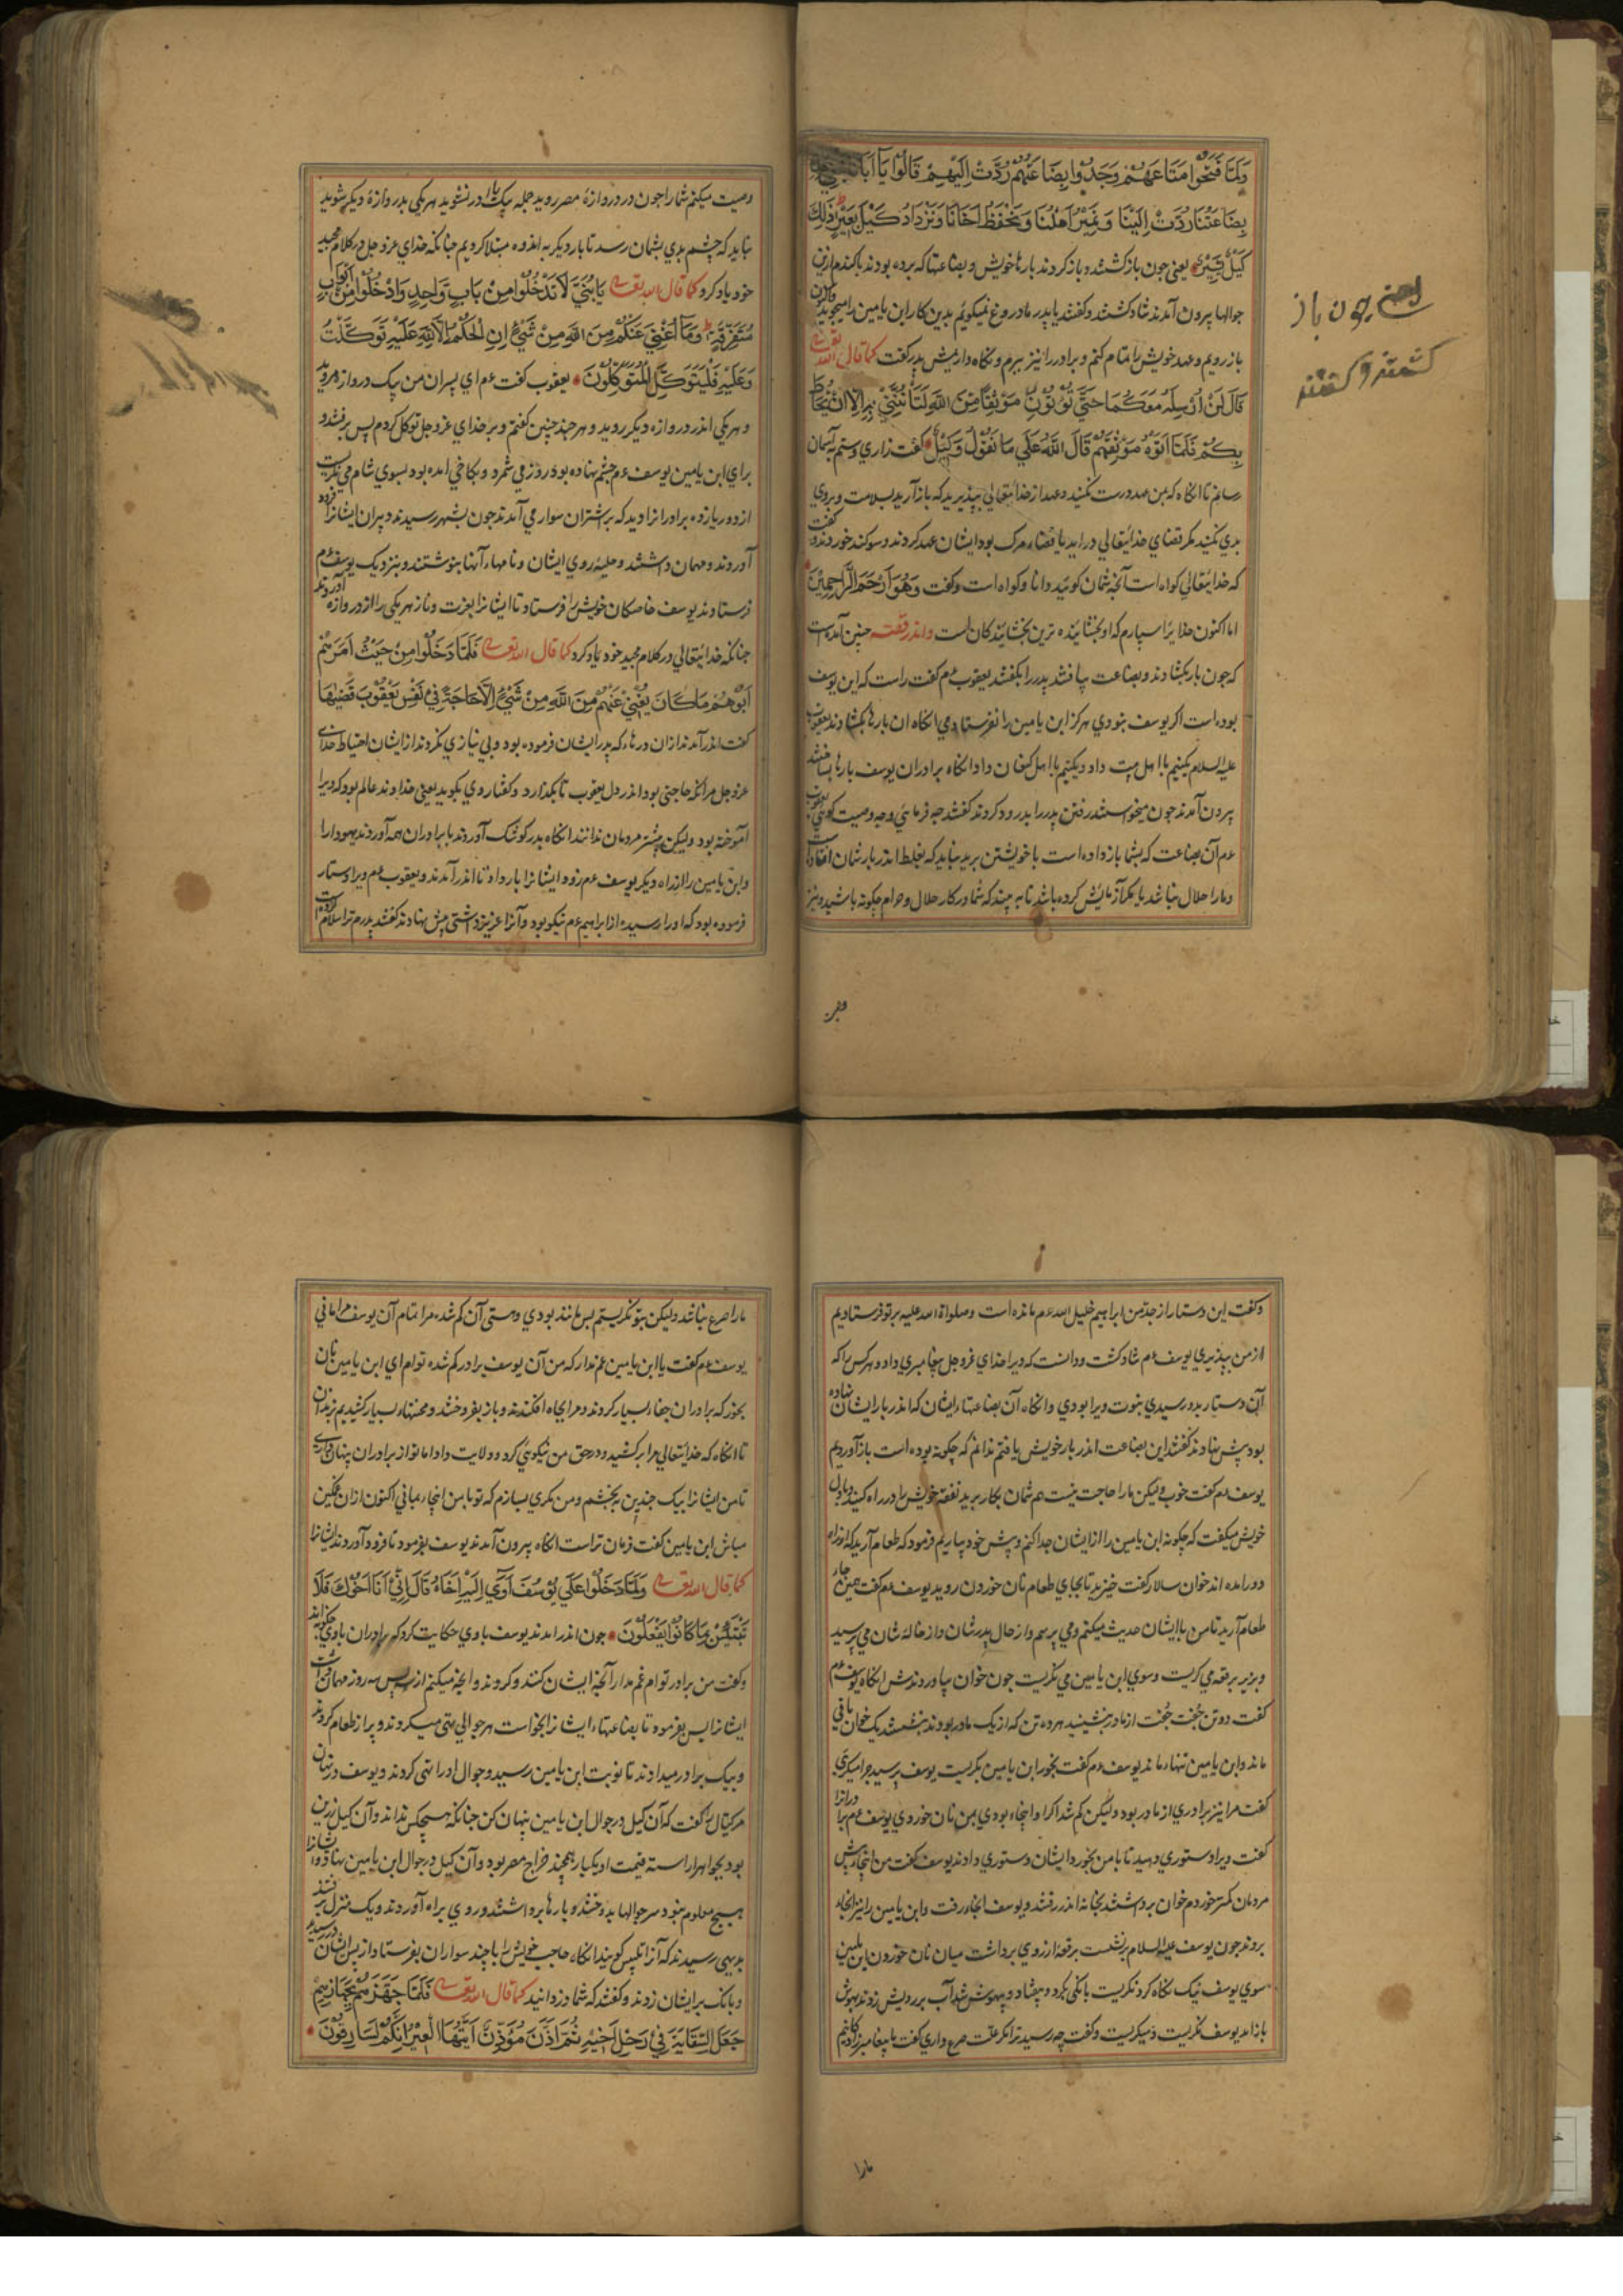 وَلَمَّا فَتَحُوا مَتَاعَهُمْ وَجَدُوا بِضَاعَتَهُمْ رُدَّتْ اِلَيْهِمْ قَالُوا يَا اَبَانَا
بِضَاعَتُنَا رُدَّتْ اِلَيْنَا وَنَمِيْرُ اَهْلَنَا وَنَحْفَظُ اَخَانَا وَنَزْدَادُ كَيْلَ بَعِيْرٍ ذَلِكَ
كَيْلٌ يَسِيْرٌ یعنی چون باز کشتند و باز کردند بارها خویش و بضاعتها که برده بودند با کندم ازین
جوالها بیرون آمدند شاد کشتند و کفتند یا پدر ما دروغ نمیکوئیم بدین کار ابن یامین را
باز رویم و عهد خویش را تمام کنم و برادر را نیز بریم و نکاه داریمش پدر کفت کما قال الله تعالی
قَالَ لَنْ اُرْسِلَهُ مَعَكُمْ حَتَّي تُؤْتُوْنِ مَوْثِقًا مِنَ اللهِ لَتَأْتُنَّنِي بِهِ اِلَّا اَنْ يُحَاطَ
بِكُمْ فَلَمَّا اَتَوْهُ مَوْثِقَهُمْ قَالَ اللهُ عَلَي مَا نَقُوْلُ وَكِيْلٌ کفت زاری و ستم بآسمان
رسانم تا آنکاه که بمن عهد درست نکنید و عهد از خدایتعالی بپذیرید که باز آرید بسلامت و بروی
بدی نکنید مکر قضای خدایتعالی در اید یا قضاء مرک بود ایشان عهد کردند و سوکند خوردند
که خدایتعالی کواه است آنچه شمان کوئید دانا و کواه است و کفت وَهُوَ اَرْحَمُ الرَّاحِمِيْنَ
اما اکنون خدایرا سپارم که او بخشاینده ترین بخشایندکان است و اندر قصه چنین آمده است
که چون بار بکشادند و بضاعت بیافتند پدر را بکفتند یعقوب عم کفت راست که این یوسف
بوده است اکر یوسف نبودی هرکز ابن یامین را نفرستادمی آنکاه ان بارها بکشادند یعقوب
علیه السلام یک نیم با اهل بیت داد و یک نیم با اهل کنعان داد آنکاه برادران یوسف بارها
بیرون آمدند چون میخواستند رفتن پدر را بدرود کردند کفتند چه فرمائی و چه وصیت کوئی یعقوب
عم آن بضاعت که بشما باز داده است با خویشتن برید نباید که بغلط اندر بارشان افتاده است
و ما را حلال نباشد یا مکر آزمایش کرده باشد تا به بیند که شما در کار حلال و حرام چکونه باشید و نیز
یعنی چون باز
کشتند و کفتند
وصیت
وصیت میکنم شما را چون در دروازهٔ مصر روید جمله بیک بار در نشوید هریکی بدروازهٔ دیکر شوید
نباید که چشم بدی بشمان رسد تا بار دیکر به اندوه مبتلا کردیم چنانکه خدای عزوجل در کلام مجید
خود یاد کرد کما قال الله تعالی يَا بُنَيَّ لَا تَدْخُلُوا مِنْ بَابٍ وَّاحِدٍ وَادْخُلُوا مِنْ اَبْوَابٍ
مُتَفَرِّقَةٍ وَمَا اُغْنِي عَنْكُمْ مِنَ اللهِ مِنْ شَيْءٍ اِنِ الْحُكْمُ اِلَّا لِلهِ عَلَيْهِ تَوَكَّلْتُ
وَعَلَيْهِ فَلْيَتَوَكَّلِ الْمُتَوَكِّلُوْنَ یعقوب کفت عم ای پسران من بیک دروازه مروید
و هریکی اندر دروازه دیکر روید و هر چند چنین کفتم و بر خدای عزوجل توکل کردم پس برفتند و
برای ابن یامین یوسف عم چشم نهاده بود و روز می شمرد و بکاخی آمده بود بسوی شام می نکریست
از دور یازده برادر را دید که بر اشتران سوار می آمدند چون بشهر رسیدند دبیران ایشانرا فرود
آوردند و مهمان داشتند و حلیهٔ روی ایشان و نامهاء آنها بنوشتند و بنزدیک یوسف عم
فرستادند یوسف خاصکان خویش را فرستاد تا ایشانرا بعزت و ناز هریکی را از دروازه آوردند
چنانکه خدایتعالی در کلام مجید خود یاد کرد کما قال الله تعالی فَلَمَّا دَخَلُوا مِنْ حَيْثُ اَمَرَهُمْ
اَبُوْهُمْ مَا كَانَ يُغْنِيْ عَنْهُمْ مِنَ اللهِ مِنْ شَيْءٍ اِلَّا حَاجَةً فِيْ نَفْسِ يَعْقُوْبَ قَضَيهَا
کفت اندر آمدند ازان درها که پدر ایشان فرموده بود و بی نیازی نکردند از ایشان احتیاط خدای
عزوجل مر آنکه حاجتی بود اندر دل یعقوب تا بکذارد و کفتار وی بکوید یعنی خداوند عالم بود که ویرا
آموخته بود ولیکن بیشتر مردمان ندانند آنکاه بدر کوشک آوردند با برادران همه آوردند یهودا را
و ابن یامین را از راه دیکر یوسف عم زود ایشانرا بار داد تا اندر آمدند و یعقوب عم ویرا دستار
فرموده بود که او را رسیده از ابراهیم عم نیکو بود و آنرا عزیز داشتی پیش نهادند کفتند پدرم ترا سلام
وکفت این دستار از جد من ابراهیم خلیل الله عم مانده است و صلواة الله علیه بر تو فرستادیم
از من بپذیری یوسف عم شاد کشت و دانست که ویرا خدای عزوجل پیغامبری داد و هرکس را که
آن دستار بدو رسیدی نبوت ویرا بودی و آنکاه آن بضاعتهاء ایشان که اندر بار ایشان نهاده
بود پیش نهادند کفتند این بضاعت اندر بار خویش یافتم ندانم که چکونه بوده است باز آوردیم
یوسف عم کفت خوب ولیکن ما را حاجت نیست هم شمان بکار برید نفقهٔ خویش را در راه کنید و بدل
خویش میکفت که چکونه ابن یامین را از ایشان جدا کنم و پیش خود بیاریم فرمود که طعام آرید که از راه
دور آمده اند خوان سالار کفت خیزید تا بجای طعام نان خوردن روید یوسف عم کفت همین جاء
طعام آرید تا من با ایشان حدیث میکنم و می پرسم و از حال پدرشان و از خالهٔ شان می پرسید
و بزیر برقعه می کریست و سوی ابن یامین می نکریست چون خوان بیاوردندش آنکاه یوسف عم
کفت دو تن جُفت جُفت از مادر بنشینید هر دو تن که از یک مادر بودند بنشستند یک خوان باقی
ماند و ابن یامین تنها ماند یوسف عم کفت بخور ابن یامین بکریست یوسف پرسید چرا میکریی
کفت مرا نیز برادری از مادر بود ولیکن کم شد اکر او اینجاء بودی بمن نان خوردی یوسف عم برادرانرا
کفت ویرا دستوری دهید تا با من بخورد ایشان دستوری دادند یوسف کفت من اینجا پیش
مردمان کمتر خوردم خوان برداشتند بخانه اندر رفتند و یوسف آنجاء رفت و ابن یامین را نیز آنجاء
بروند چون یوسف علیه السلام برنشست برقعه از روی برداشت میان نان خوردن ابن یامین
سوی یوسف نیک نکاه کرد نکریست بانکی بکرد و بیفتاد و بیهوش شد آب بر رویش زدند بهوش
باز آمد یوسف نکریست و میکریست و کفت چه رسید ترا مکر علت صرع داری کفت یا پیغامبرزاده
مارا
مارا صرع نباشد ولیکن بتو نکریستم پس مانند بودی و ستی آن کم شده مرا تمام آن یوسف مرا مانی
یوسف عم کفت یا ابن یامین غم ندار که من آن یوسف برادر کم شده توام ای ابن یامین نان
بخور که برادران جفاء بسیار کردند و مرا بچاه افکندند و باز بفروختند و محنتهاء بسیار کشیدیم بزندان
تا آنکاه که خدایتعالی مرا برکشید و در حق من نیکوئی کرد و ولایت داد اما تو از برادران پنهان
تا من ایشانرا بیک چندین برنجشم و من مکری بسازم که تو با من اینجاء بمانی اکنون ازان غمکین
مباش ابن یامین کفت فرمان تراست آنکاه بیرون آمدند یوسف بفرمود تا فرود آوردند ایشانرا
کما قال الله تعالی وَلَمَّا دَخَلُوا عَلَي يُوْسُفَ اَوَي اِلَيْهِ اَخَاهُ قَالَ اِنِّي اَنَا اَخُوْكَ فَلَا
تَبْتَئِسْ بِمَا كَانُوا يَفْعَلُوْنَ چون اندر آمدند یوسف با وی حکایت کرد که برادران با وی
و کفت من برادر توام غم مدار آنچه ایشان کنند و کردند و آنچه میکنم از پس سه روز مهمان داشت
ایشانرا پس بفرمود تا بضاعتهاء ایشانرا بخواست هر جوالی تهی میکردند و پر از طعام کردند
و بیک برادر میدادند تا نوبت ابن یامین رسید و جوال او را تهی کردند و یوسف در نهان
مر کیال را کفت که آن کیل در جوال ابن یامین پنهان کن چنانکه هیچکس نداند و آن کیل زرین
بود بجواهر آراسته قیمت او یکبار همچند خراج مصر بود و آن کیل در جوال ابن یامین نهاد و ایشانرا
هیچ معلوم نبود سر جوالها بدوختند و بارها برداشتند و روی براه آوردند و یک منزل برفتند
بدیهی رسیدند که آنرا تلبیس کویند آنکاه حاجب خویش را با چند سواران بفرستاد از پس ایشان در رسید
و بانک بر ایشان زدند و کفتند که شما دزدانید کما قال الله تعالی فَلَمَّا جَهَّزَهُمْ بِجَهَازِهِمْ
جَعَلَ السِّقَايَةَ فِيْ رَحْلِ اَخِيْهِ ثُمَّ اَذَّنَ مُؤَذِّنٌ اَيَّتُهَا الْعِيْرُ اِنَّكُمْ لَسَارِقُوْنَ